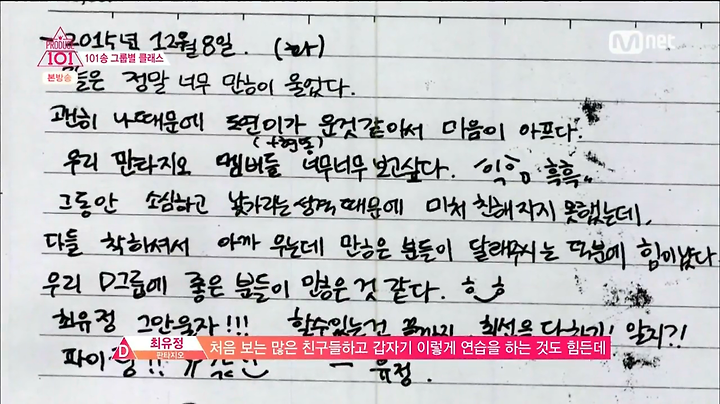 2015년 12월 8일. (화)
PRODUCE
101
101송 그룹별 클래스
본방송
Mnet
늘은 정말 너무 많이 울었다.
괜히 나때문에 도연이가 운것같아서 마음이 아프다.
우리 판타지오 멤버들 너무너무 보고싶다. 흑흑..
그동안 소심하고 낯가리는 성격때문에 미처 친해지지 못했는데,
다들 착하셔서 아까 우는데 많은 분들이 달래주시는 덕분에 힘이났다
우리 D그룹에 좋은 분들이 많은것 같다.
최유정 그만울자!!! 할수있는건 끝까지 최선을 다하기! 알지?!
파이팅!! - 유정.
D
최유정
판타지오
처음 보는 많은 친구들하고 갑자기 이렇게 연습을 하는 것도 힘든데